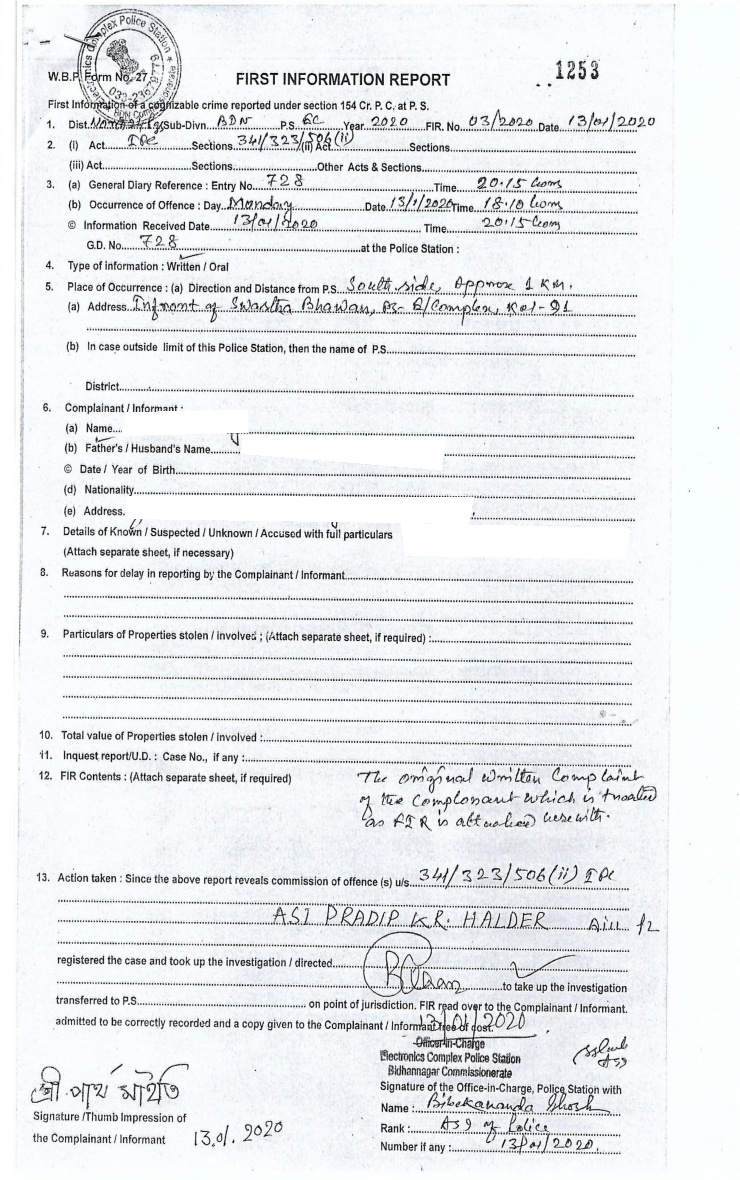 Electronics Complex Police Station
W.B.P. Form No. 27
FIRST INFORMATION REPORT
1253
First Information of a cognizable crime reported under section 154 Cr. P. C. at P. S.
1. Dist. Sub-Divn. BDN P.S. EC Year 2020 FIR. No. 03/2020 Date 13/01/2020
2. (i) Act IPC Sections 341/323/506(ii) (ii) Act Sections
(iii) Act Sections Other Acts & Sections
3. (a) General Diary Reference : Entry No. 728 Time 20.15 hrs
(b) Occurrence of Offence : Day Monday Date 13/1/2020 Time 18.10 hrs
© Information Received Date 13/01/2020 Time 20.15 hrs
G.D. No. 728 at the Police Station :
4. Type of information : Written / Oral
5. Place of Occurrence : (a) Direction and Distance from P.S. South side, Approx 1 KM.
(a) Address Infront of Swastha Bhawan, PS- E/Complex, Kol-91
(b) In case outside limit of this Police Station, then the name of P.S.
District
6. Complainant / Informant :
(a) Name
(b) Father's / Husband's Name
© Date / Year of Birth
(d) Nationality
(e) Address.
7. Details of Known / Suspected / Unknown / Accused with full particulars
(Attach separate sheet, if necessary)
8. Reasons for delay in reporting by the Complainant / Informant
9. Particulars of Properties stolen / involved ; (Attach separate sheet, if required) :
10. Total value of Properties stolen / involved :
11. Inquest report/U.D. : Case No., if any :
12. FIR Contents : (Attach separate sheet, if required) The original written Complaint
of the Complainant which is treated
as FIR is attached herewith.
13. Action taken : Since the above report reveals commission of offence (s) u/s. 341/323/506(ii) IPC
ASI PRADIP KR. HALDER
registered the case and took up the investigation / directed
to take up the investigation
transferred to P.S. on point of jurisdiction. FIR read over to the Complainant / Informant.
admitted to be correctly recorded and a copy given to the Complainant / Informant free of cost.
13/01/2020
Officer-in-Charge
Electronics Complex Police Station
Bidhannagar Commissionerate
Signature of the Office-in-Charge, Police Station with
শ্রী পার্থ মাইতি
Name : Bibekananda Ghosh
Signature /Thumb Impression of
Rank : ASI of Police
the Complainant / Informant 13.01.2020
Number if any : 13/01/2020.